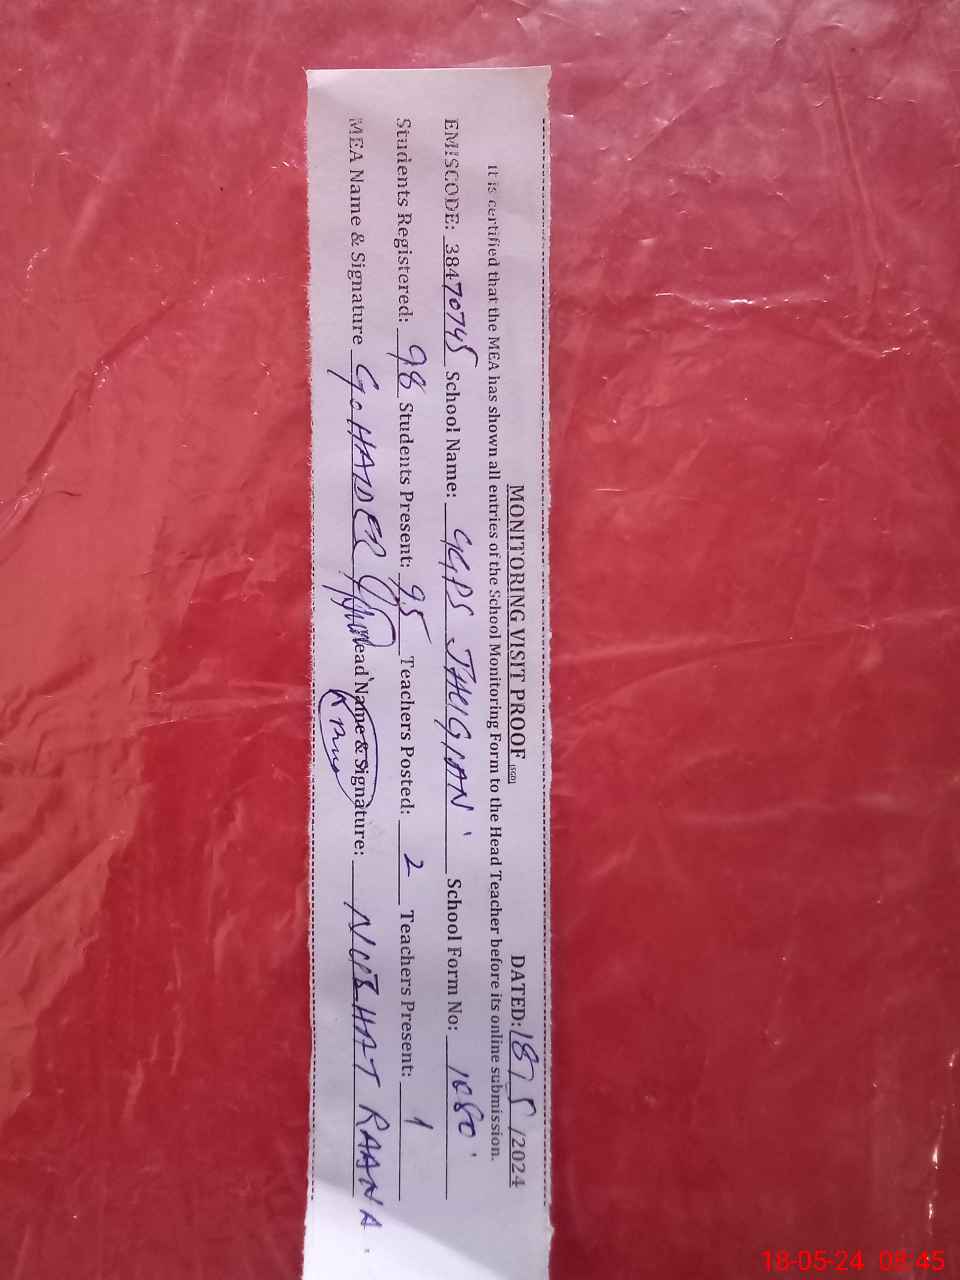 MONITORING VISIT PROOF (SGD) DATED: 18/5/2024
It is certified that the MEA has shown all entries of the School Monitoring Form to the Head Teacher before its online submission.
EMISCODE: 38470745 School Name: GGPS JHUGIAN School Form No: 1080
Students Registered: 98 Students Present: 95 Teachers Posted: 2 Teachers Present: 1
MEA Name & Signature G. HAIDER Head Name & Signature: NUZHAT RAANA
18-05-24 08:45